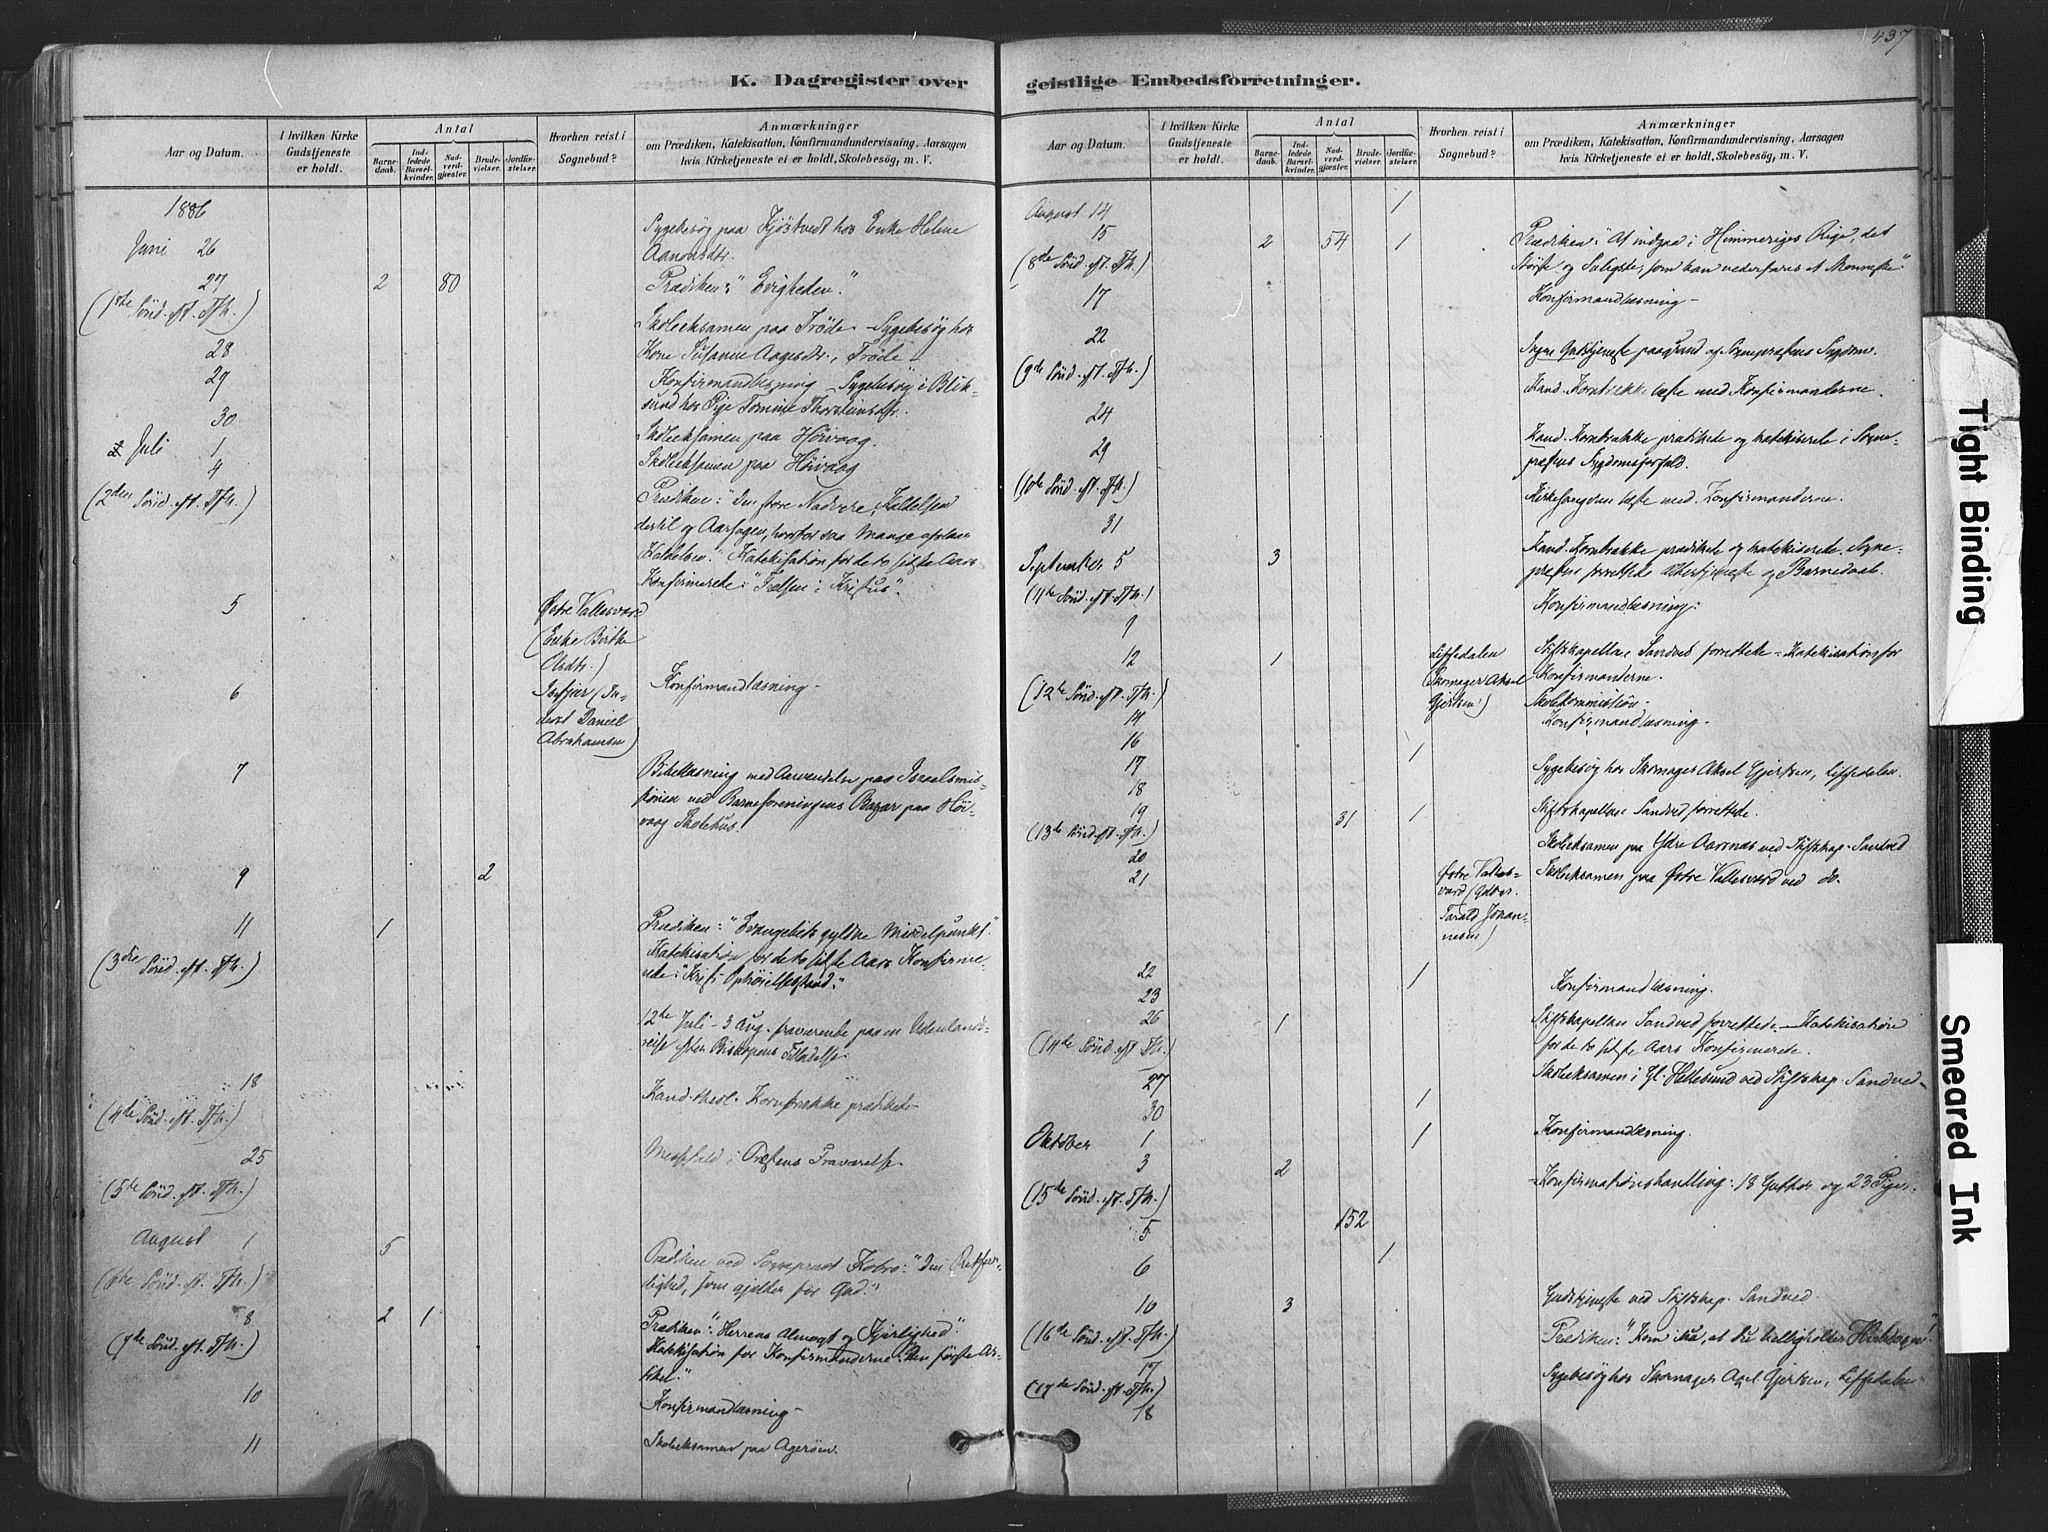 437
K. Dagregister over geistlige Embedsforretninger.
Aar og Datum.
I hvilken Kirke Gudstjeneste er holdt.
Antal
Barnedaab.
Indledede Barselkvinder.
Nadverdgjæster.
Brudevielser.
Jordfæstelser.
Hvorhen reist i Sognebud?
Anmærkninger
om Prædiken, Katekisation, Konfirmandundervisning, Aarsagen
hvis Kirketjeneste ei er holdt, Skolebesøg, m. V.
1886
Juni 26 Sygebesøg paa Kjöstvedt hos Enke Helene
Aanonsdtr.
27 2 80 Prædiken: "Evigheden".
(1ste Sönd. eft. Tfh.)
28 Skoleeksamen paa Tröde - Sygebesøg hos
Kone Susanne Aagesdtr., Tröde -
29 Konfirmandlæsning - Sygebesøg i Blik-
sund hos Pige Tomine Thorsteinsdtr.
30 Skoleeksamen paa Höivaag.
Juli 1 Skoleeksamen paa Höivaag
4 Prædiken: "Den store Nadvere, Kaldelsen
(2den Sönd. eft. Tfh.) dertil og Aarsagen, hvorfor saa Mange afslaar
Kaldelsen." Katekisation for de to sidste Aars
Konfirmerede: "Frelsen i Kristus".
5 Østre Vallesværd
(Enke Birthe
Olsdtr.)
6 Isefjær (In-
derst Daniel
Abrahamsen)
Konfirmandlæsning -
7 Bibellæsning med Anvendelse paa Israelsmis-
sionen ved Barneforeningens Bazar paa Höi-
vaag Skolehus.
9 2
11 1 Prædiken: "Evangeliets gyldne Middelpunkt".
(3die Sönd. eft. Tfh.) Katekisation for de to sidste Aars Konfirme-
rede: "Kristi Ophöielsesstand."
12te Juli - 3 Aug. fraværende paa en Udenlands-
reise efter Biskopens Tilladelse.
18 Kand. theol. Kornbrække prædikede
(4de Sönd. eft. Tfh.)
25 Messefald i Præstens Fraværelse
(5te Sönd. eft. Tfh.)
August 1 5 Prædiken ved Sogneprest Kobro: "Den Retfær-
(6te Sönd. eft. Tfh.) dighed, som gjelder for Gud."
8 2 1 Prædiken: "Herrens Almagt og Kjærlighed".
(7de Sönd. eft. Tfh.) Katekisation for Konfirmanderne: "Den første Ar-
tikel."
10 Konfirmandlæsning -
11 Skoleeksamen paa Ageröen.
Aar og Datum.
I hvilken Kirke Gudstjeneste er holdt.
Antal
Barnedaab.
Indledede Barselkvinder.
Nadverdgjæster.
Brudevielser.
Jordfæstelser.
Hvorhen reist i Sognebud?
Anmærkninger
om Prædiken, Katekisation, Konfirmandundervisning, Aarsagen
hvis Kirketjeneste ei er holdt, Skolebesøg, m. V.
August 14 1
15 2 54 1 Prædiken: "At indgaa i Himmeriges Rige, det
(8de Sönd. eft. Tfh.) Største og Saligste, som kan vederfares et Menneske".
17 Konfirmandlæsning -
22 Ingen Gudstjeneste paagrund af Sognepræstens Sygdom.
(9de Sönd. eft. Tfh.)
24 Kand. Kornbrække læste med Konfirmanderne.
29 Kand. Kornbrække prædikede og katekiserede i Sogne-
(10de Sönd. eft. Tfh.) præstens Sygdomsforfald.
31 Kirkesangeren læste med Konfirmanderne.
September 5 3 Kand. Kornbrække prædikede og katekiserede. Sogne-
(11te Sönd. eft. Tfh.) præsten forrettede Altertjeneste og Barnedaab.
9 Konfirmandlæsning:
12 1 Liffedalen
(Skomager Aksel
Gjertsen)
Stiftskapellan Sandved forrettede - Katekisation for
(12te Sönd. eft. Tfh.) Konfirmanderne.
14 Skolekommission -
16 Konfirmandlæsning -
17 1
18 Sygebesøg hos Skomager Aksel Gjertsen, Liffedalen.
19 31 1 Stiftskapellan Sandved forrettede.
(13de Sönd. eft. Tfh.)
20 Skoleeksamen paa Ydre Aarsnæs ved Stiftskap. Sandved
21 Østre Valles-
værd (Gdbr.
Tarald Johan-
nesen)
Skoleeksamen paa Østre Vallesværd ved do.
22 1
23 Konfirmandlæsning.
26 1 Stiftskapellan Sandved forrettede - Katekisation
(14de Sönd. eft. Tfh.) for de to sidste Aars Konfirmerede.
27 Skoleeksamen i Gl. Hellesund ved Stiftskap. Sandved -
30 1
Oktober 1 1 Konfirmandlæsning.
3 2 Konfirmationshandling: 18 Gutter og 23 Piger.
(15de Sönd. eft. Tfh.)
5 152
6 1
10 3 Gudstjeneste ved Stiftskap. Sandved.
(16de Sönd. eft. Tfh.)
17 Prædiken: "Kom ihu, at du helligholder Hviledagen"!
(17de Sönd. eft. Tfh.)
18 Sygebesøg hos Skomager Axel Gjertsen, Liffedalen
Tight Binding
Smeared Ink